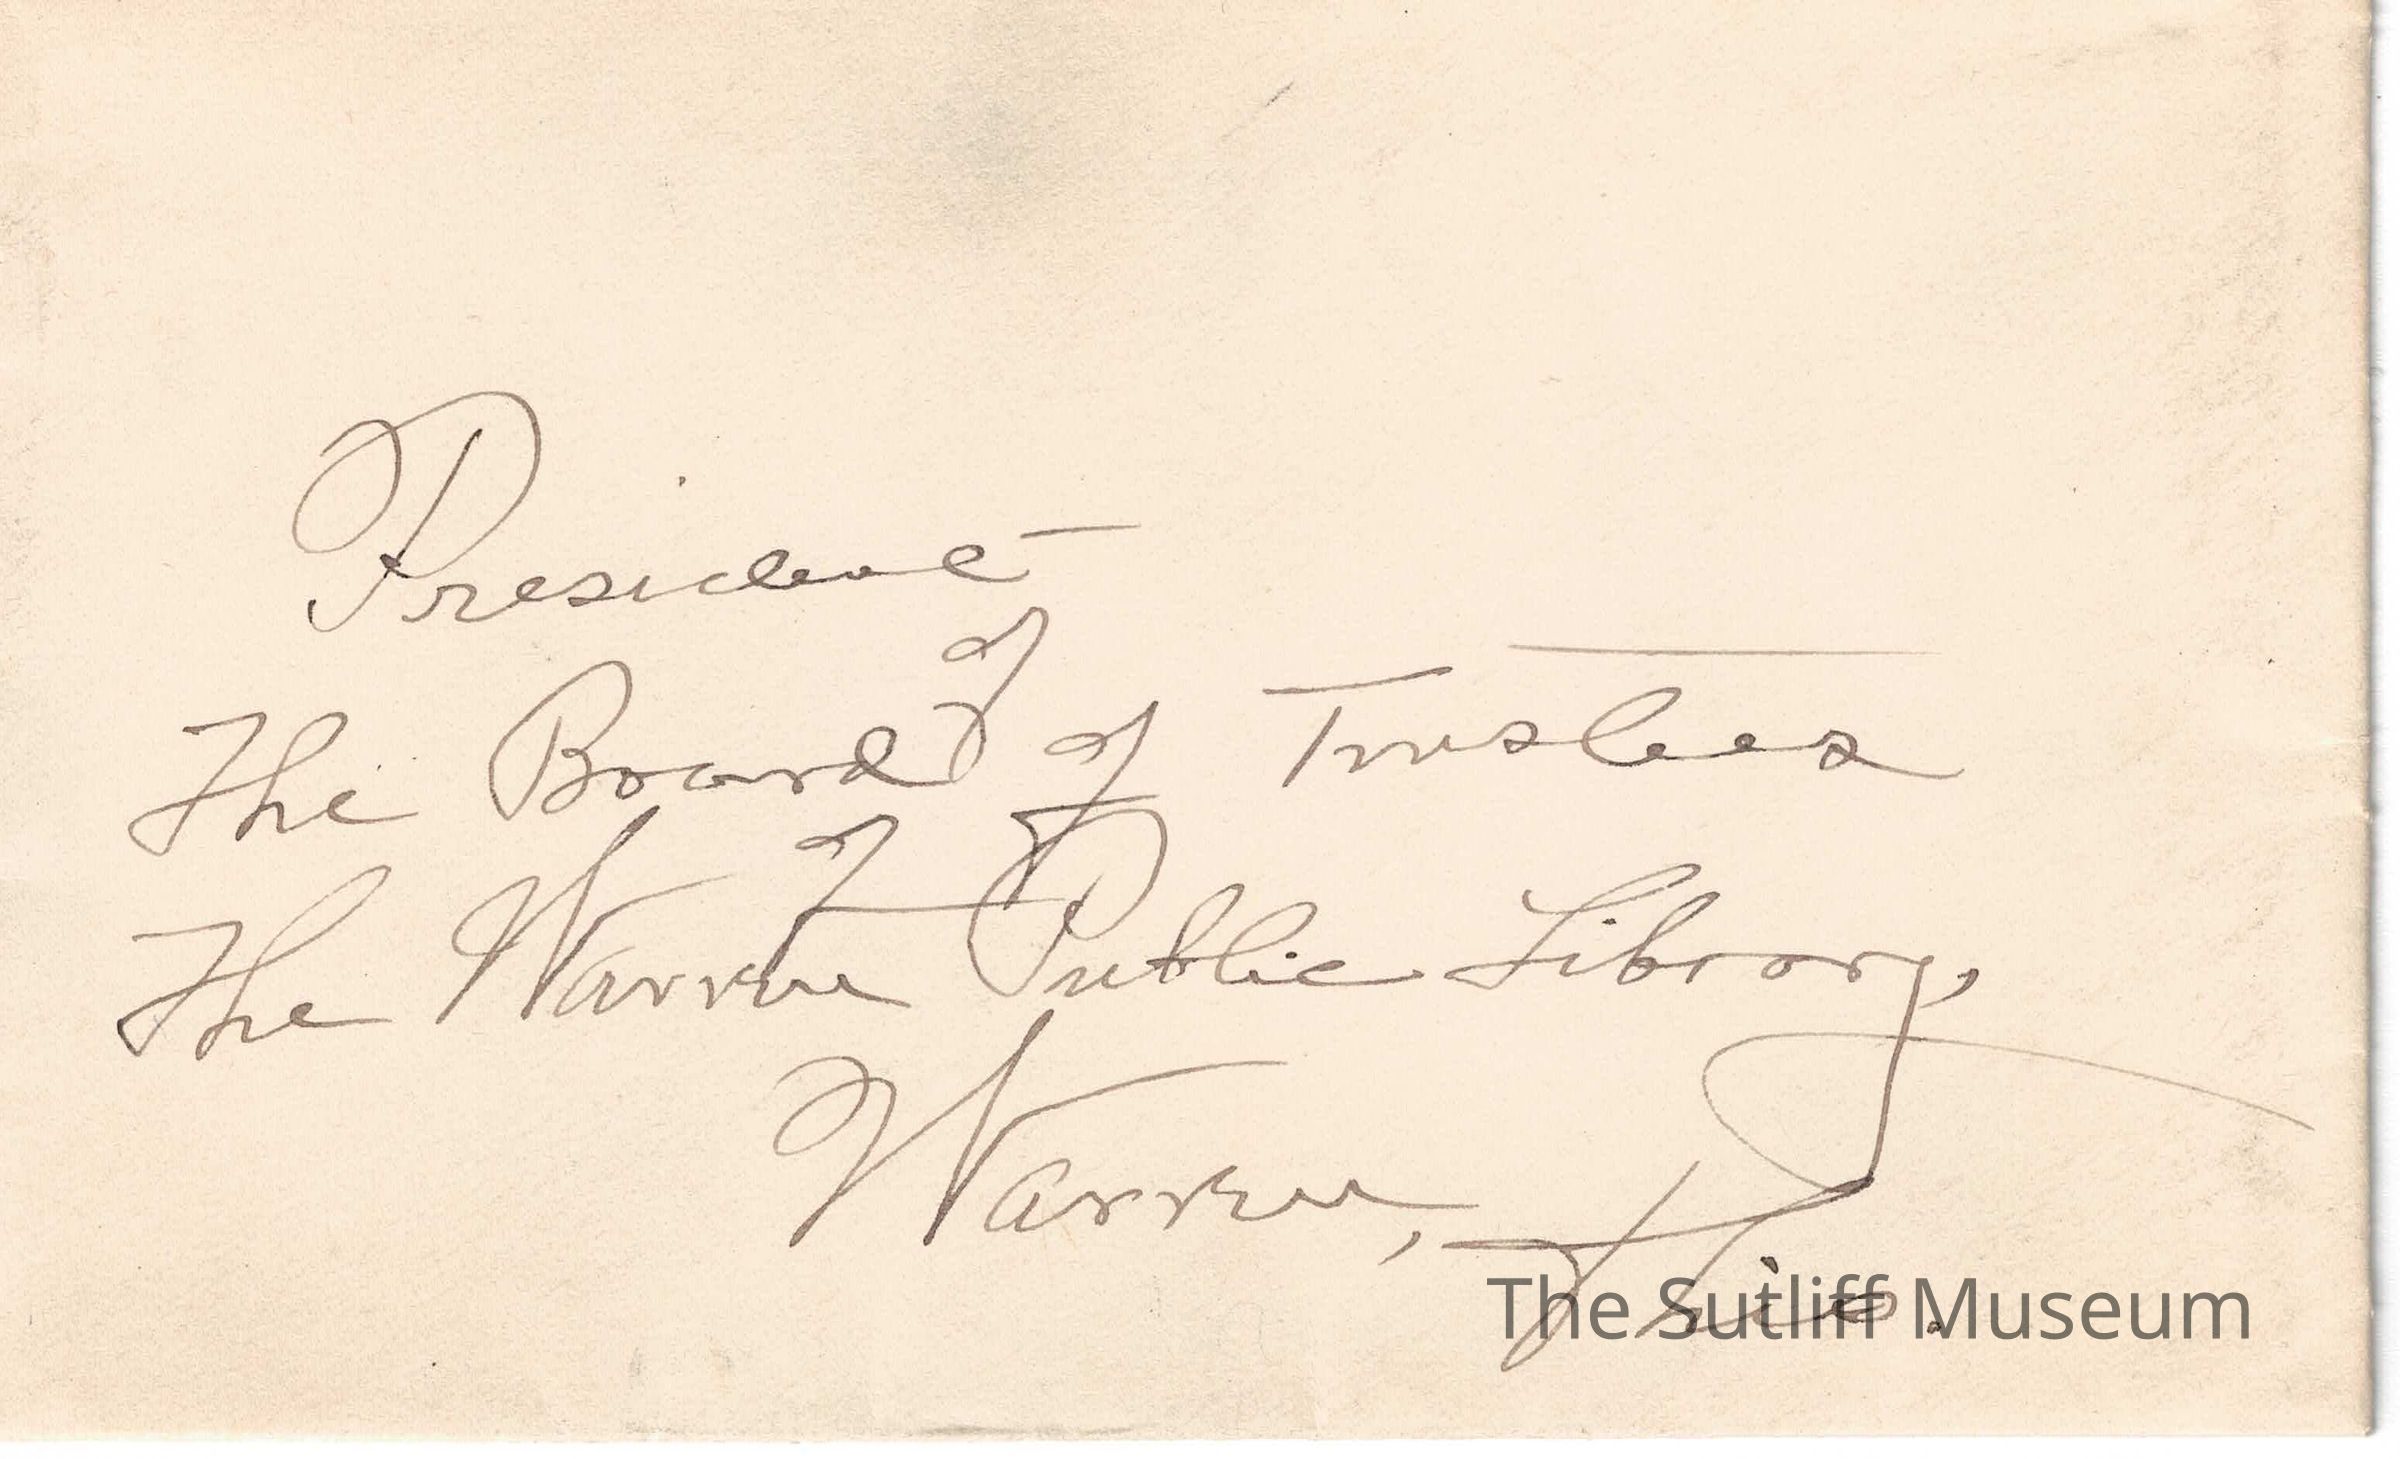 President
of
The Board of Trustees
of
The Warren Public Library,
Warren, Ohio.
The Sutliff Museum